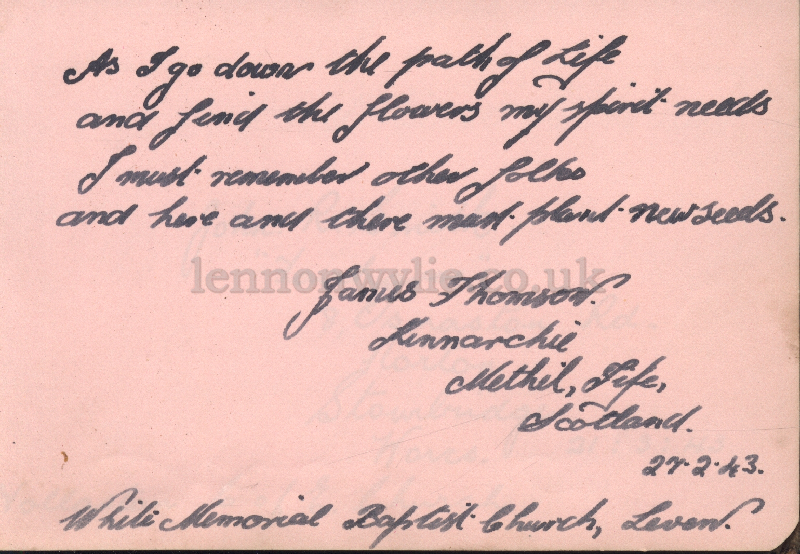 As I go down the path of Life
and find the flowers my spirit needs
I must remember other folks
and here and there must plant new seeds.
lennonwylie.co.uk
James Thomson.
Kinnarchie
Methil, Fife,
Scotland.
27.2.43.
White Memorial Baptist Church, Leven.